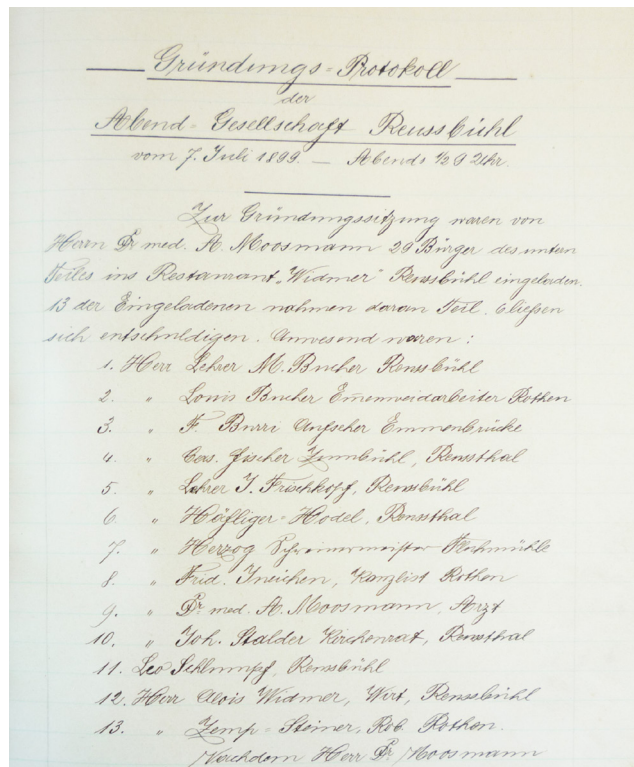 Gründungs-Protokoll
der
Abend-Gesellschaft Reussbühl
vom 7. Juli 1899. — Abends ½ 9 Uhr.
Zur Gründungssitzung waren von
Herrn Dr med. A. Moosmann 29 Bürger des untern
Teiles ins Restaurant „Widmer" Reussbühl eingeladen.
13 der Eingeladenen nahmen daran Teil. 6 ließen
sich entschuldigen. Anwesend waren:
1. Herr Lehrer M. Bucher Reussbühl
2. " Louis Bucher Emmenweidarbeiter Rothen
3. " F. Burri Aufseher Emmenbrücke
4. " Cas. Fischer Zimmbühl, Reussthal
5. " Lehrer J. Frischkopf, Reussbühl
6. " Häfliger-Hodel, Reussthal
7. " Herzog Schreinermeister
8. " Frid. Ineichen, Kanzlist Rothen
9. " Dr med. A. Moosmann, Arzt
10. " Joh. Stalder Kirchenrat, Reussthal
11. Leo Schlumpf, Reussbühl
12. Herr Alois Widmer, Wirt, Reussbühl
13. " Zemp-Steiner, Rob. Rothen.
Nachdem Herr Dr Moosmann